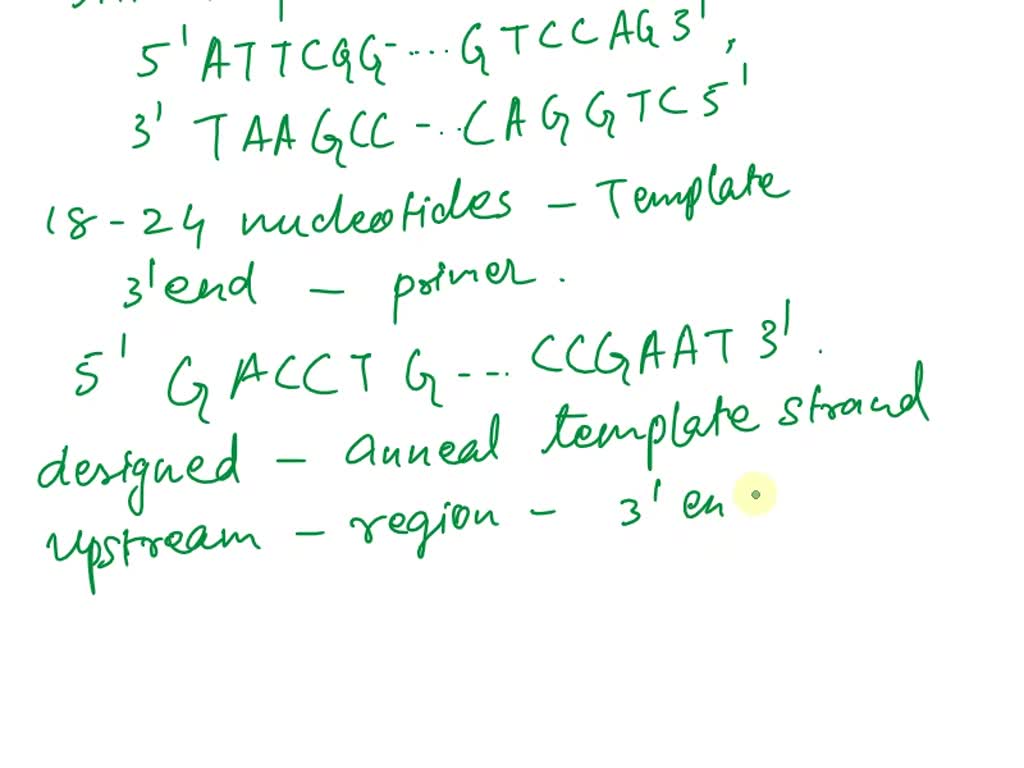 5' ATTCGG-...GTCCAG 3',
3' TAAGCC-...CAGGTC 5'
18-24 nucleotides - Template
3' end - primer.
5' GACCTG--...CCGAAT 3'.
designed - anneal template strand
upstream - region - 3' en